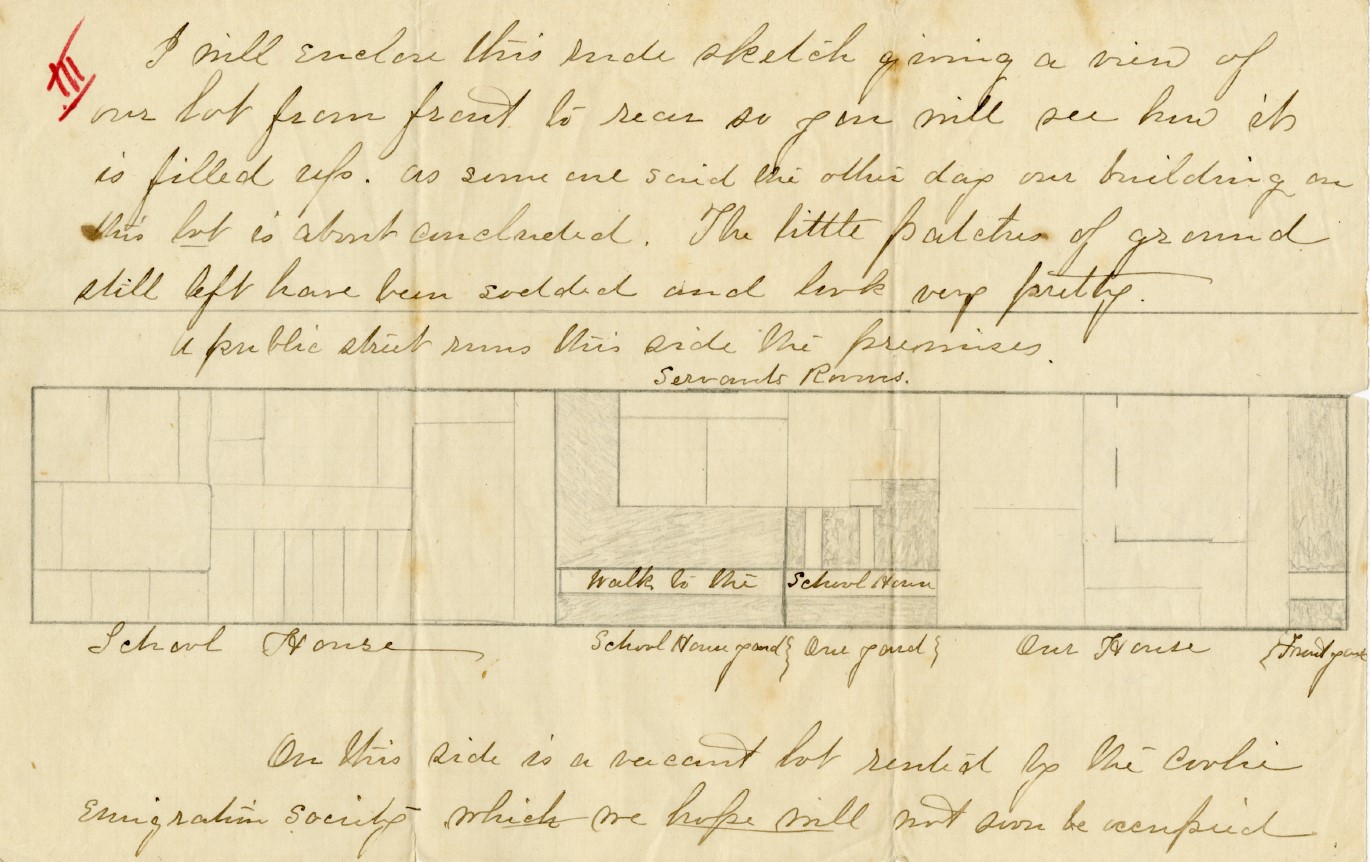 III.
I will enclose this rude sketch giving a view of
our lot from front to rear so you will see how it
is filled up. as some one said the other day our building on
this lot is about concluded. The little patches of ground
still left have been sodded and look very pretty.
A public street runs this side the premises.
Servants Rooms.
Walk to the School House
School House School House yard } Our yard } Our House { Front yard
On this side is a vacant lot rented by the coolie
Emigration Society which we hope will not soon be occupied.